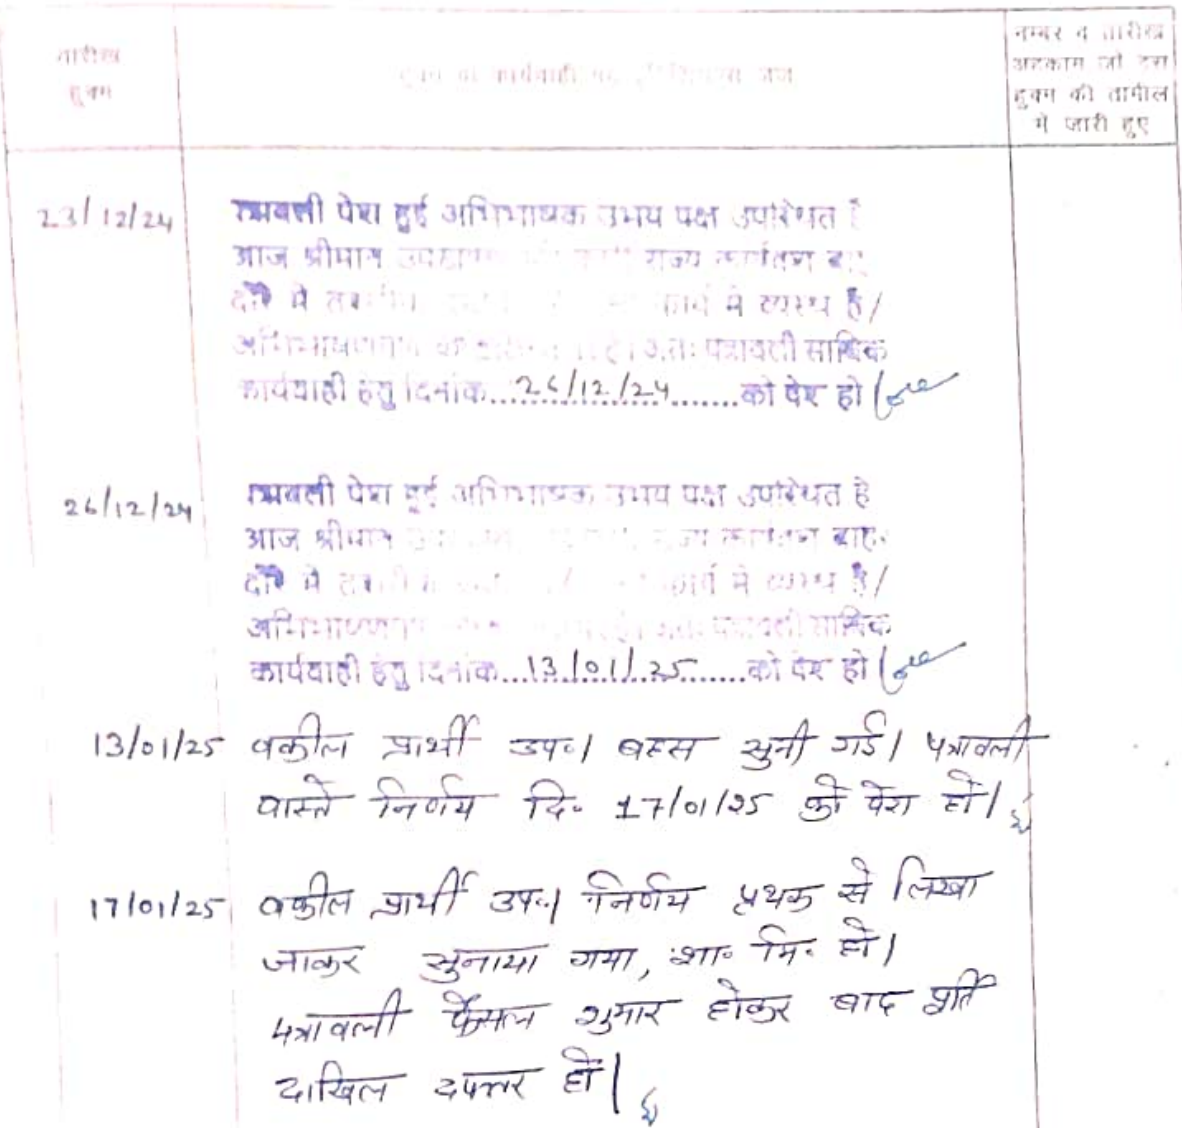 तारीख
हुक्म
हुक्म या कार्यवाही मय इनिशियल्स जज
नम्बर व तारीख
अहकाम जो इस
हुक्म की तामील
में जारी हुए
23/12/24
पत्रावली पेश हुई अभिभाषक उभय पक्ष उपस्थित है
आज श्रीमान राज्य कार्यवश बाहर
दौरे में कार्य में व्यस्त है/
अतः पत्रावली साबिक
कार्यवाही हेतु दिनांक...26/12/24.......को पेश हो
26/12/24
पत्रावली पेश हुई अभिभाषक उभय पक्ष उपस्थित है
आज श्रीमान राज्य कार्यवश बाहर
दौरे में कार्य में व्यस्त है/
अतः पत्रावली साबिक
कार्यवाही हेतु दिनांक...13/01/25.......को पेश हो
13/01/25 वकील प्रार्थी उप०। बहस सुनी गई। पत्रावली
वास्ते निर्णय दि० 17/01/25 को पेश हो।
17/01/25 वकील प्रार्थी उप०। निर्णय प्रथक से लिखा
जाकर सुनाया गया, शा० मि० हो।
पत्रावली फैसल शुमार होकर बाद पूर्ति
दाखिल दफ्तर हो।